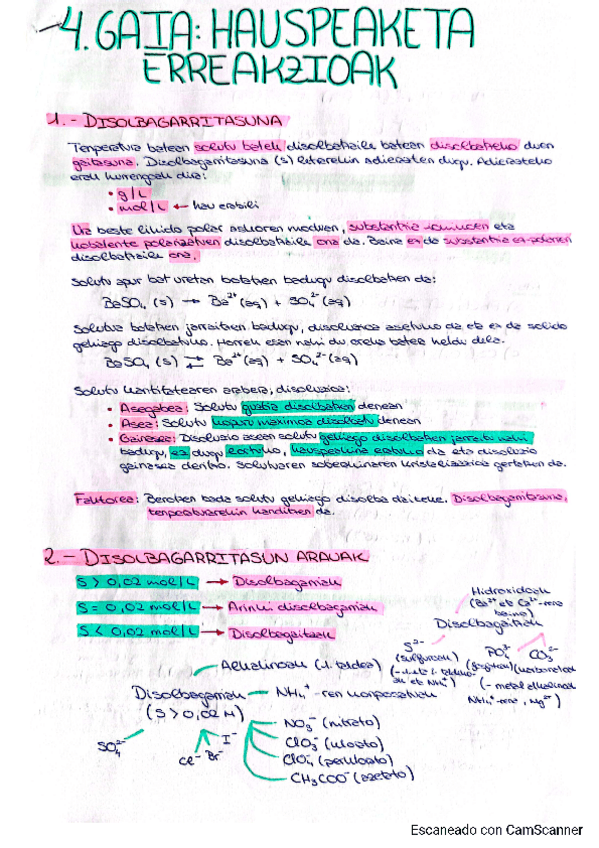 4. GAIA: HAUSPEAKETA
ERREAKZIOAK
1.- DISOLBAGARRITASUNA
Tenperatura batean solutu batek disolbatzaile batean disolbatzeko duen
gaitasuna. Disolbagarritasuna (s) letrarekin adierazten dugu. Adierazteko
erak hurrengoak dira:
• g/L
• mol/L ← hau erabili
Ura beste likido polar askoren moduan, substantzia ionikoen eta
kobalente polarizatuen disolbatzaile ona da. Baina ez da substantzia ez-polarren
disolbatzaile ona.
Solutu apur bat uretan botatzen badugu disolbatzen da:
BaSO₄ (s) → Ba²⁺ (aq) + SO₄²⁻ (aq)
Solutua botatzen jarraitzen badugu, disoluzioa asetuko da eta ez da solido
gehiago disolbatuko. Horrek esan nahi du oreka batera heldu dela.
BaSO₄ (s) ⇄ Ba²⁺ (aq) + SO₄²⁻ (aq)
Solutu kantitatearen arabera, disoluzioa:
• Asegabea: Solutu guztia disolbatzen denean
• Asea: Solutu kopuru maximoa disolbatu denean
• Gainasea: Disoluzio asean solutu gehiago disolbatzen jarraitu nahi
badugu, ez dugu lortuko, hauspeakina eratuko da eta disoluzio
gainasea deritzo. Solutuaren soberakinaren kristalizazioa gertatzen da.
Faktorea: Berotzen bada solutu gehiago disolba daiteke. Disolbagarritasuna,
tenperaturarekin handitzen da.
2.- DISOLBAGARRITASUN ARAUAK
S > 0,02 mol/L → Disolbagarriak
S = 0,02 mol/L → Arinki disolbagarriak
S < 0,02 mol/L → Disolbagaitzak
Hidroxidoak
(Ba²⁺ eta Ca²⁺-rena
baino)
Disolbagaitzak
S²⁻
(sulfuroak)
PO₄³⁻
CO₃²⁻
(karbonatoak)
(- metal alkalinoak
Alkalinoak (1. taldea)
Disolbagarriak
(S > 0,02 M)
NH₄⁺-ren konposatuak
SO₄²⁻
Cl⁻ Br⁻ I⁻
NO₃⁻ (nitrato)
ClO₃⁻ (klorato)
ClO₄⁻ (perklorato)
CH₃COO⁻ (azetato)
Escaneado con CamScanner